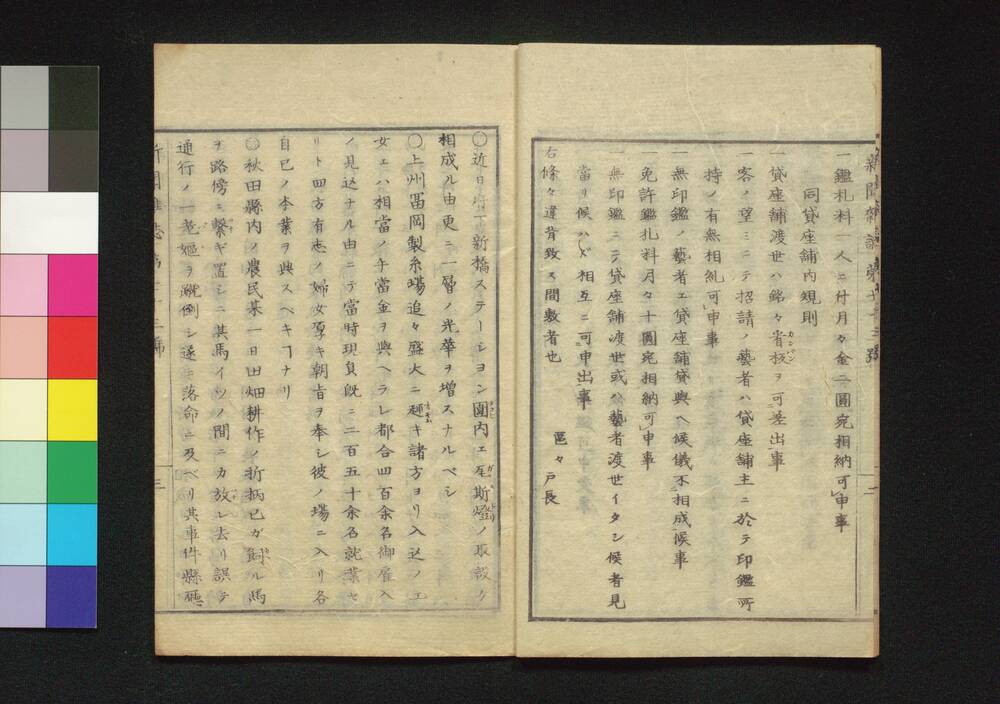 新聞雜誌第七十三號
二
一鑑札料一人ニ付月々金二圓宛相納可申事
同貸座舖内規則
一貸座舖渡世ハ銘々看板ヲ可差出事
カンバン
一客ノ望ミニテ招請ノ藝者ハ貸座舖主ニ於テ印鑑所
持ノ有無相糺可申事
一無印鑑ノ藝者エ貸座舖貸與ヘ候儀不相成候事
一免許鑑札料月々十圓宛相納可申事
一無印鑑ニテ貸座舖渡世或ハ藝者渡世イタシ候者見
當リ候ハヾ相互ニ可申出事
右條々違背致ス間敷者也
區々戸長
〇近日府下新橋ステーシヨン圍内エ瓦斯燈ノ取設ケ
相成ル由更ニ一層ノ光華ヲ増スナルベシ
〇上州冨岡製糸場追々盛大ニ趣キ諸方ヨリ入込ノエ
女エハ相當ノ手當金ヲ與ヘラレ都合四百余名御雇入
ノ見込ナル由ニテ當時現員既ニ二百五十余名就業セ
リト四方有志ノ婦女厚キ朝旨ヲ奉シ彼ノ場ニ入リ各
自已ノ本業ヲ興スヘキヿナリ
〇秋田縣内ノ農民某一日田畑耕作ノ折柄已ガ飼ル馬
ヲ路傍ニ繋ギ置シニ其馬イツノ間ニカ放レ去リ誤テ
通行ノ一老嫗ヲ蹴倒シ遂ニ落命ニ及ベリ其事件縣聽
三